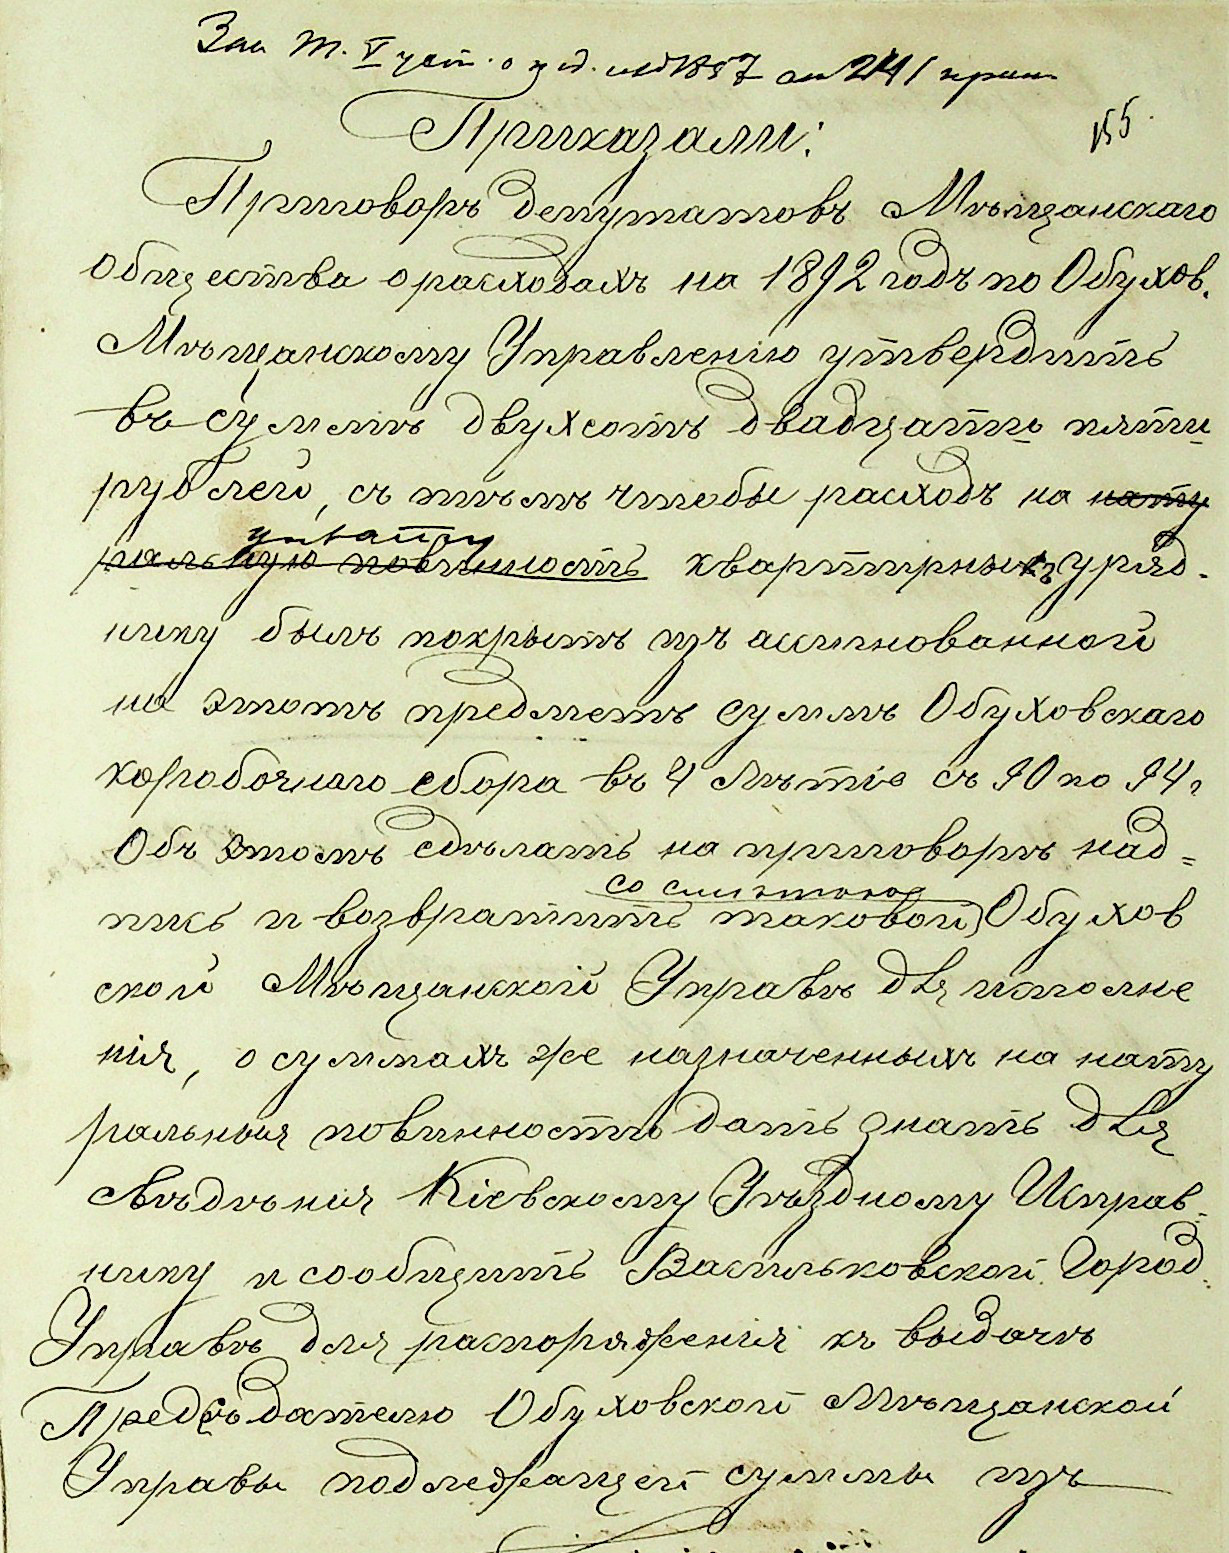 Зак. т. V уст. о изд. 1857 ст 241 прим
155.
Приказали:
Приговоръ депутатовъ Мѣщанскаго
общества о расходахъ на 1892 годъ по Обухов.
Мѣщанскому Управленію утвердить
въ суммѣ двухсотъ двадцати пяти
рублей, съ тѣмъ чтобы расходъ на нату
ральную повинность квартирныхъ уряд-
нику былъ покрытъ изъ ассигнованной
на этотъ предметъ суммъ Обуховскаго
коробочнаго сбора въ 4 лѣтіе съ 90 по 94 г
Объ этомъ сдѣлать на приговорѣ над=
со смѣтою
пись и возвратить таковой Обухов
ской Мѣщанской Управѣ для исполне
нія, о суммахъ же назначенныхъ на нату
ральныя повинности дать знать для
свѣдѣнія Кіевскому Уѣздному Исправ-
нику и сообщить Васильковской Город.
Управѣ для распоряженія къ выдачѣ
Предсѣдателю Обуховской Мѣщанской
Управы подлежащей суммы изъ